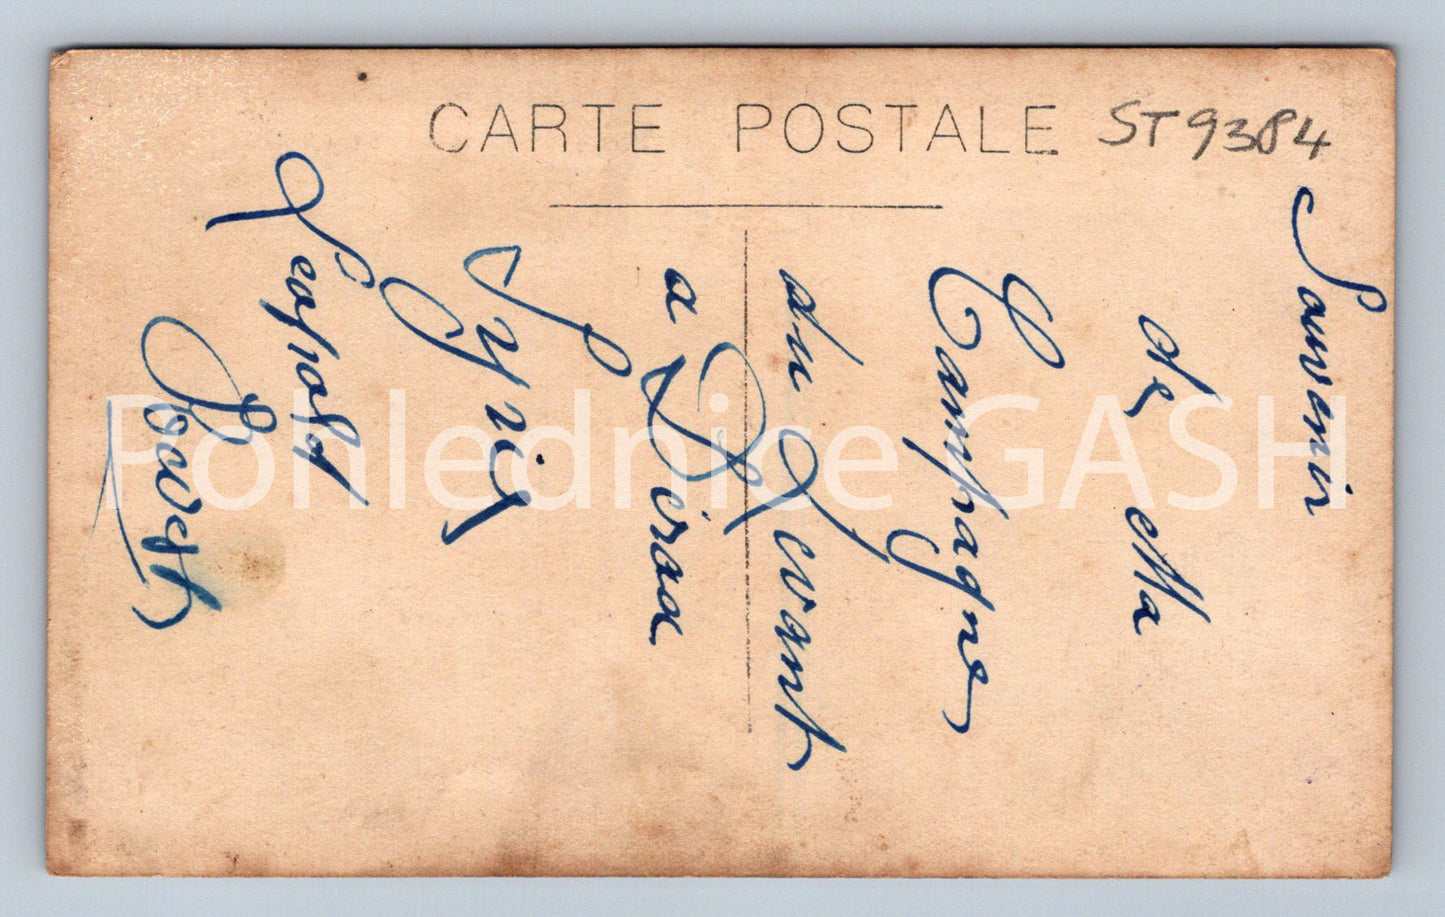 CARTE POSTALE
ST9384
Souvenir
de ma
Campagne
du Levant
a Diraa
Syrie
Leopold
Pohlednice GASH